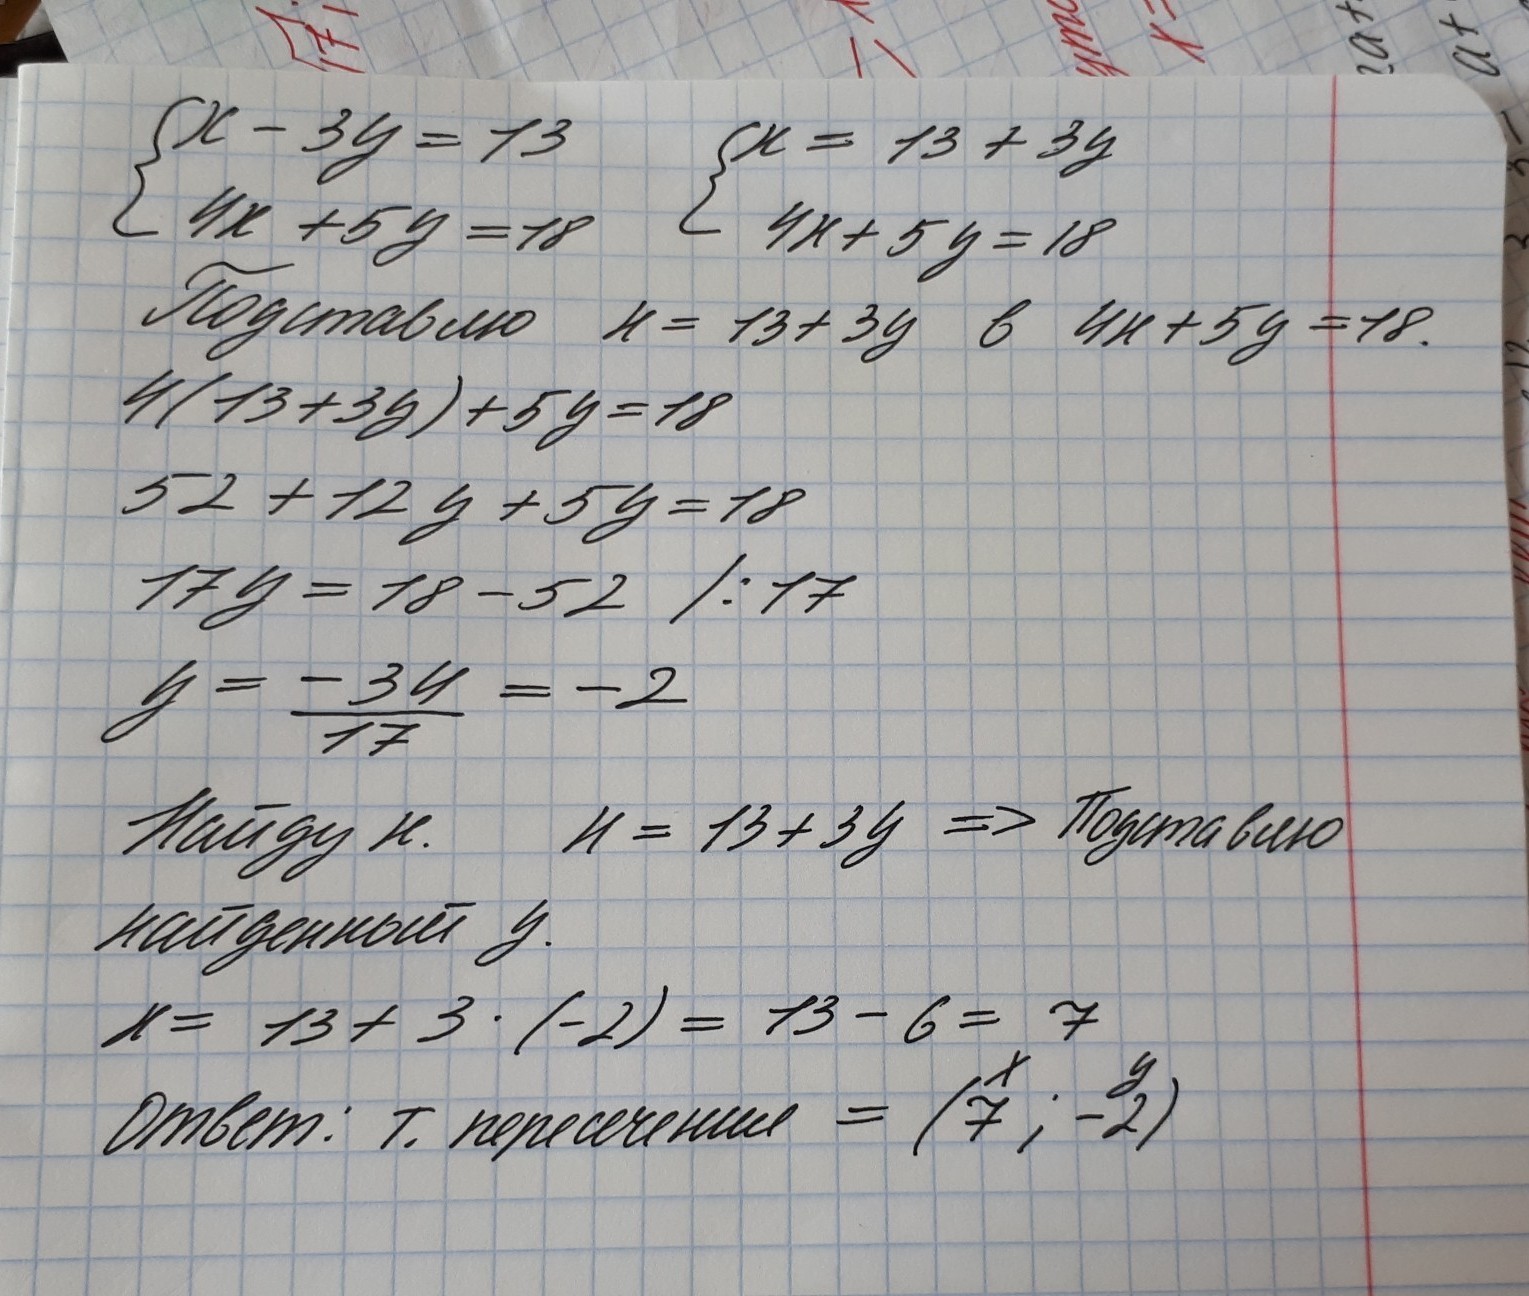 x - 3y = 13 x = 13 + 3y
4x + 5y = 18 4x + 5y = 18
Подставлю x = 13 + 3y в 4x + 5y = 18.
4(13 + 3y) + 5y = 18
52 + 12y + 5y = 18
17y = 18 - 52 /: 17
y = -34/17 = -2
Найду x. x = 13 + 3y => Подставлю
найденный y.
x = 13 + 3 · (-2) = 13 - 6 = 7
x y
Ответ: т. пересечения = (7 ; -2)